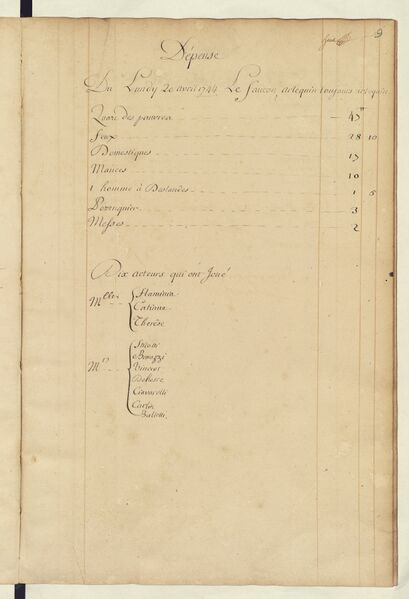 9
Dépense
Du Lundy 20 avril 1744 Le faucon, arlequin toujours arlequin
Quart des pauvres 47ᵗᵗ
feux 28 10
Domestiques 17
Mances 10
1 homme à Deslandes 1 5
Perruquier 3
Messes 2
Dix acteurs qui ont Joué
Mlles
Flaminia
Coraline
Therèse
Mrs
Sticoti
Vincent
Deshayes
Ciavarelli
Carlin
Balleti